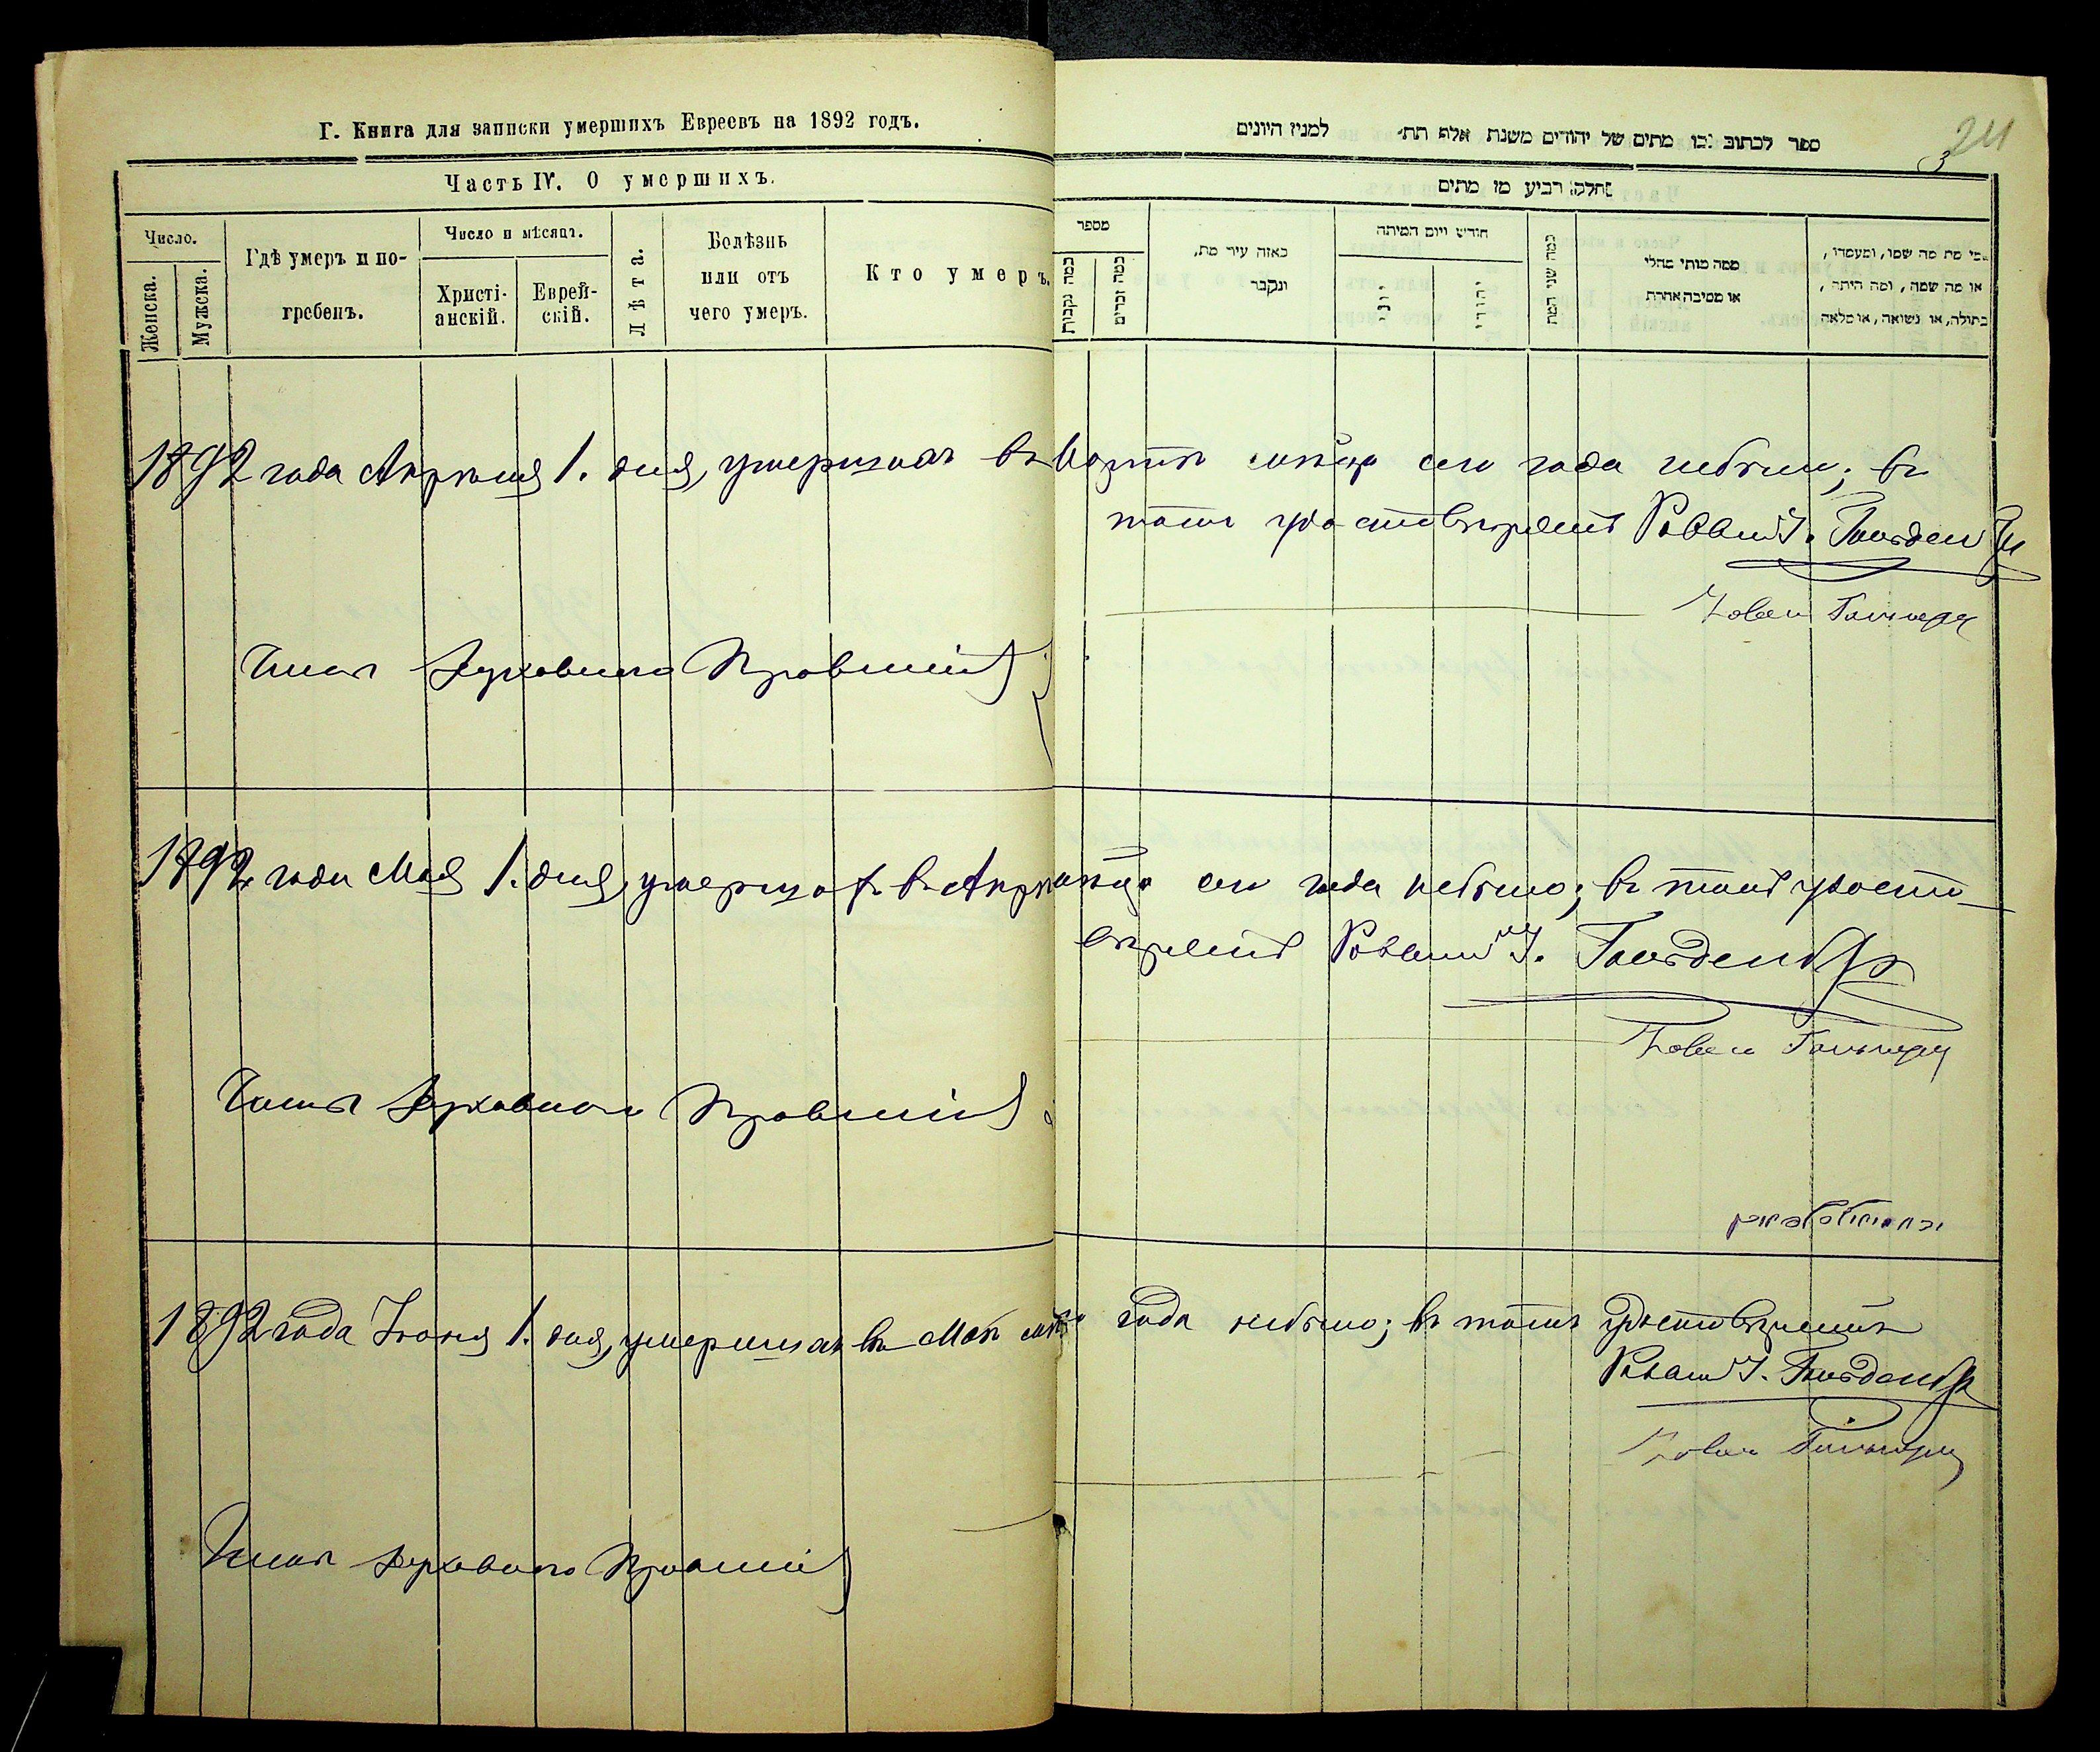 Г. Книга для записки умершихъ Евреевъ на 1892 годъ.
Часть IV. О умершихъ.
Число.
Женска.
Мужска.
Гдѣ умеръ и по-
гребенъ.
Число и мѣсяцъ.
Христі-
анскій.
Еврей-
скій.
Лѣта.
Болѣзнь
или отъ
чего умеръ.
Кто умеръ.
ספר לכתוב בו מתים של יהודים משנת אלף תת׳ למנין היונים
24
3
חלק רביעי מן מתים
מספר
כמה נקבות
כמה זכרים
באזה עיר מת,
ונקבר
חודש ויום המיתה
יוני
יהודי
כמה שני המת
ממה מותו מחלי
או מסיבה אחרת
מי מת מה שמו, ומעמדו,
או מה שמה, ומה היתה,
בתולה, או נשואה, או אלמנה
1892 года Апрѣля 1. дня, умершихъ въ Мартѣ мѣсяцѣ сего года небыло; въ
томъ удостовѣряемъ Раввинъ
Члены Духовнаго Правленія
1892 года Мая 1. дня, умершихъ въ Апр мѣсяцѣ сего года небыло; въ томъ удосто-
вѣряемъ Раввинъ
Члены Духовнаго Правленія
1892 года Іюня 1. дня, умершихъ въ Маѣ года небыло; въ томъ удостовѣряемъ
Раввинъ
Члены Духовнаго Правленія